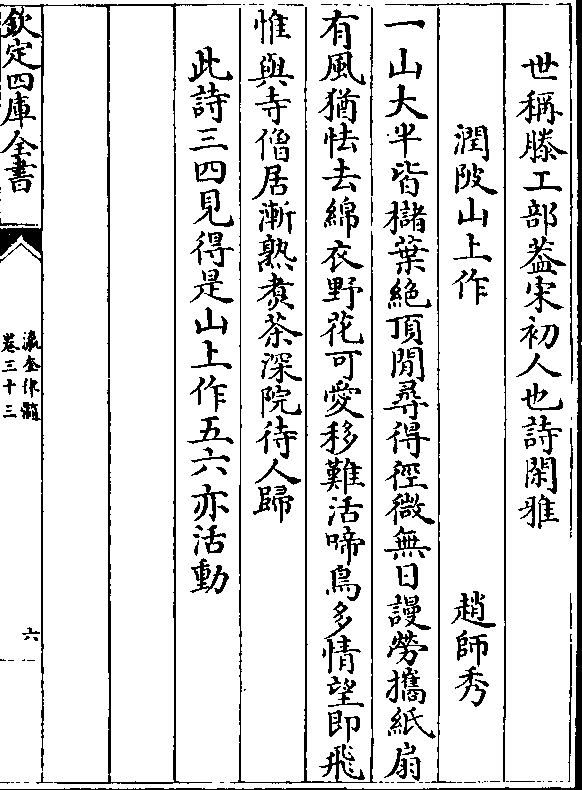 世稱滕工部葢宋初人也詩閑雅
澗陂山上作　趙師秀
一山大半皆櫧葉絶頂閒尋得徑微無日謾勞攜紙扇
有風猶怯去綿衣野花可愛移難活啼鳥多情望即飛
惟與寺僧居漸熟煑茶深院待人歸
此詩三四見得是山上作五六亦活動
欽定四庫全書
瀛奎律髓
卷三十三
六